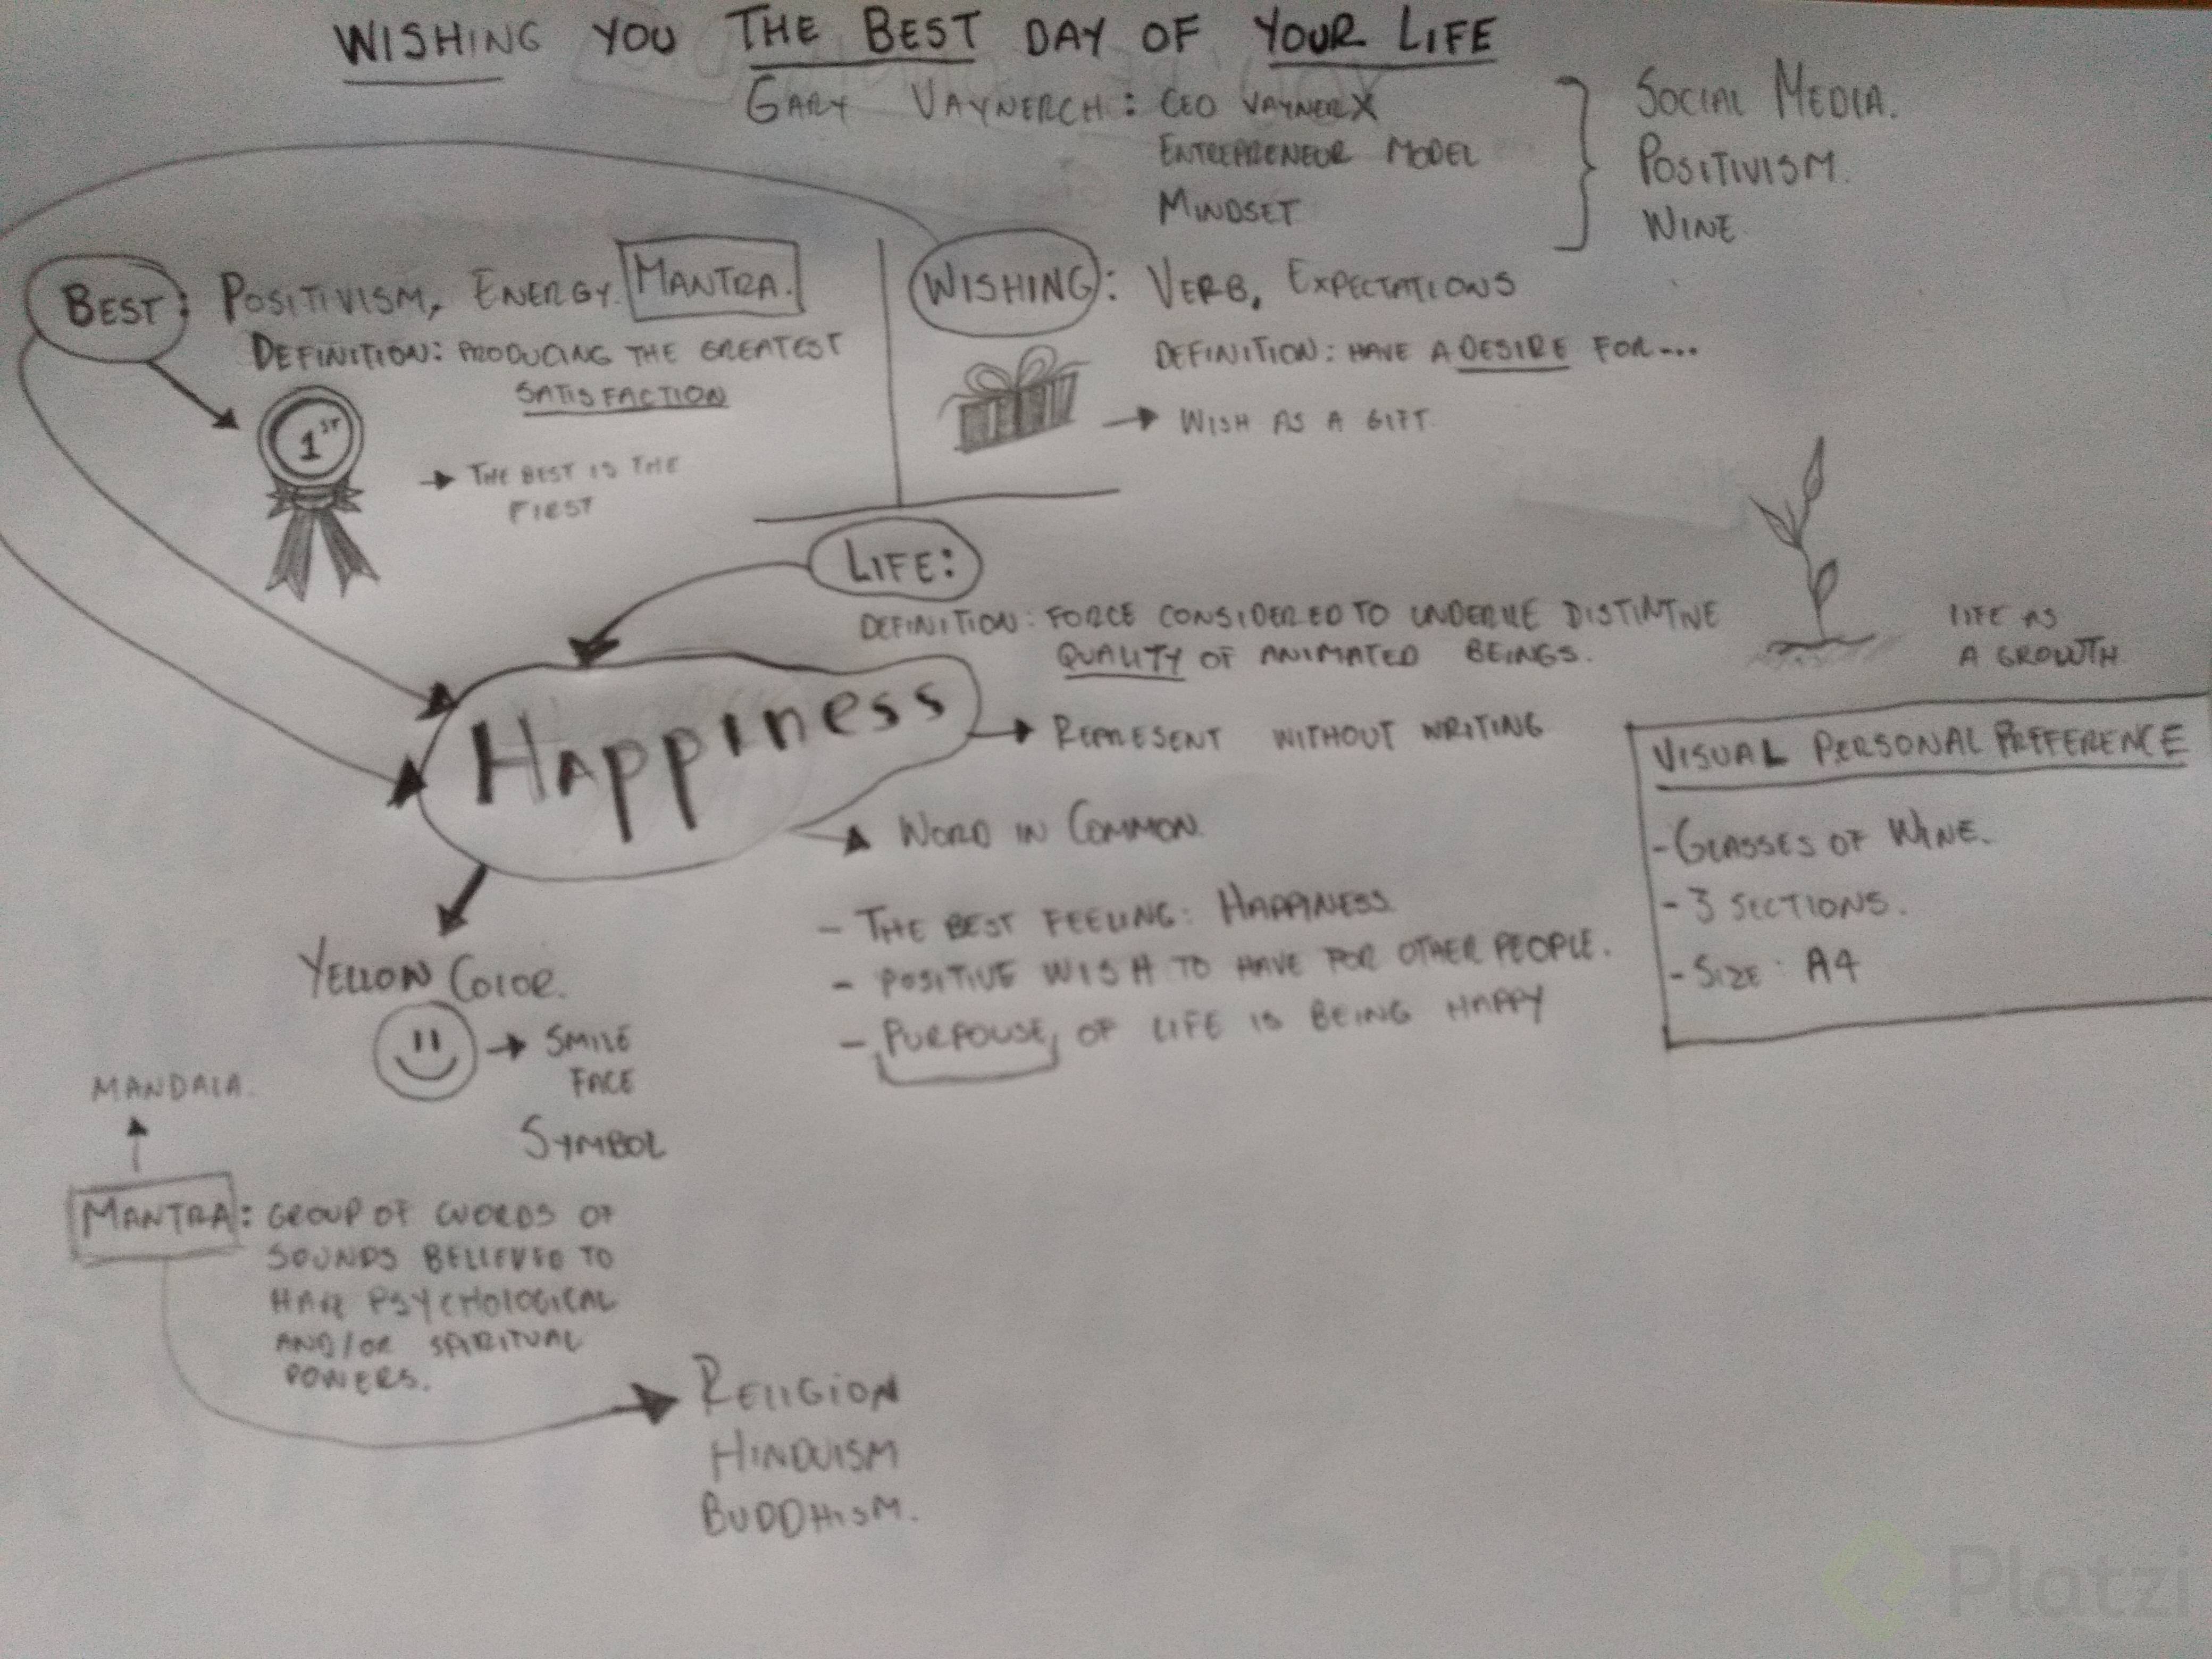 WISHING YOU THE BEST DAY OF YOUR LIFE
GARY VAYNERCH: CEO VAYNERX
ENTREPRENEUR MODEL
MINDSET
SOCIAL MEDIA.
POSITIVISM.
WINE
BEST: POSITIVISM, ENERGY. MANTRA.
DEFINITION: PRODUCING THE GREATEST
SATISFACTION
1ST
THE BEST IS THE
FIRST
WISHING: VERB, EXPECTATIONS
DEFINITION: HAVE A DESIRE FOR...
WISH AS A GIFT
LIFE:
DEFINITION: FORCE CONSIDERED TO UNDERLIE DISTINTIVE
QUALITY OF ANIMATED BEINGS.
LIFE AS
A GROWTH
HAPPINESS
REPRESENT WITHOUT WRITING
WORD IN COMMON.
- THE BEST FEELING: HAPPINESS.
- POSITIVE WISH TO HAVE FOR OTHER PEOPLE.
- PURPOUSE OF LIFE IS BEING HAPPY
VISUAL PERSONAL PREFERENCE
- GLASSES OF WINE.
- 3 SECTIONS.
- SIZE: A4
YELLOW COLOR.
SMILE
FACE
SYMBOL
MANDALA.
MANTRA: GROUP OF WORDS OF
SOUNDS BELIEVED TO
HAVE PSYCHOLOGICAL
AND/OR SPIRITUAL
POWERS.
RELIGION
HINDUISM
BUDDHISM.
Platzi